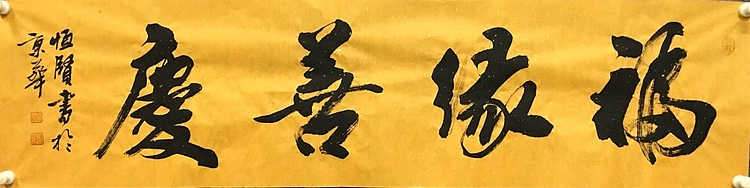 福緣善慶
恒賢書於
京華